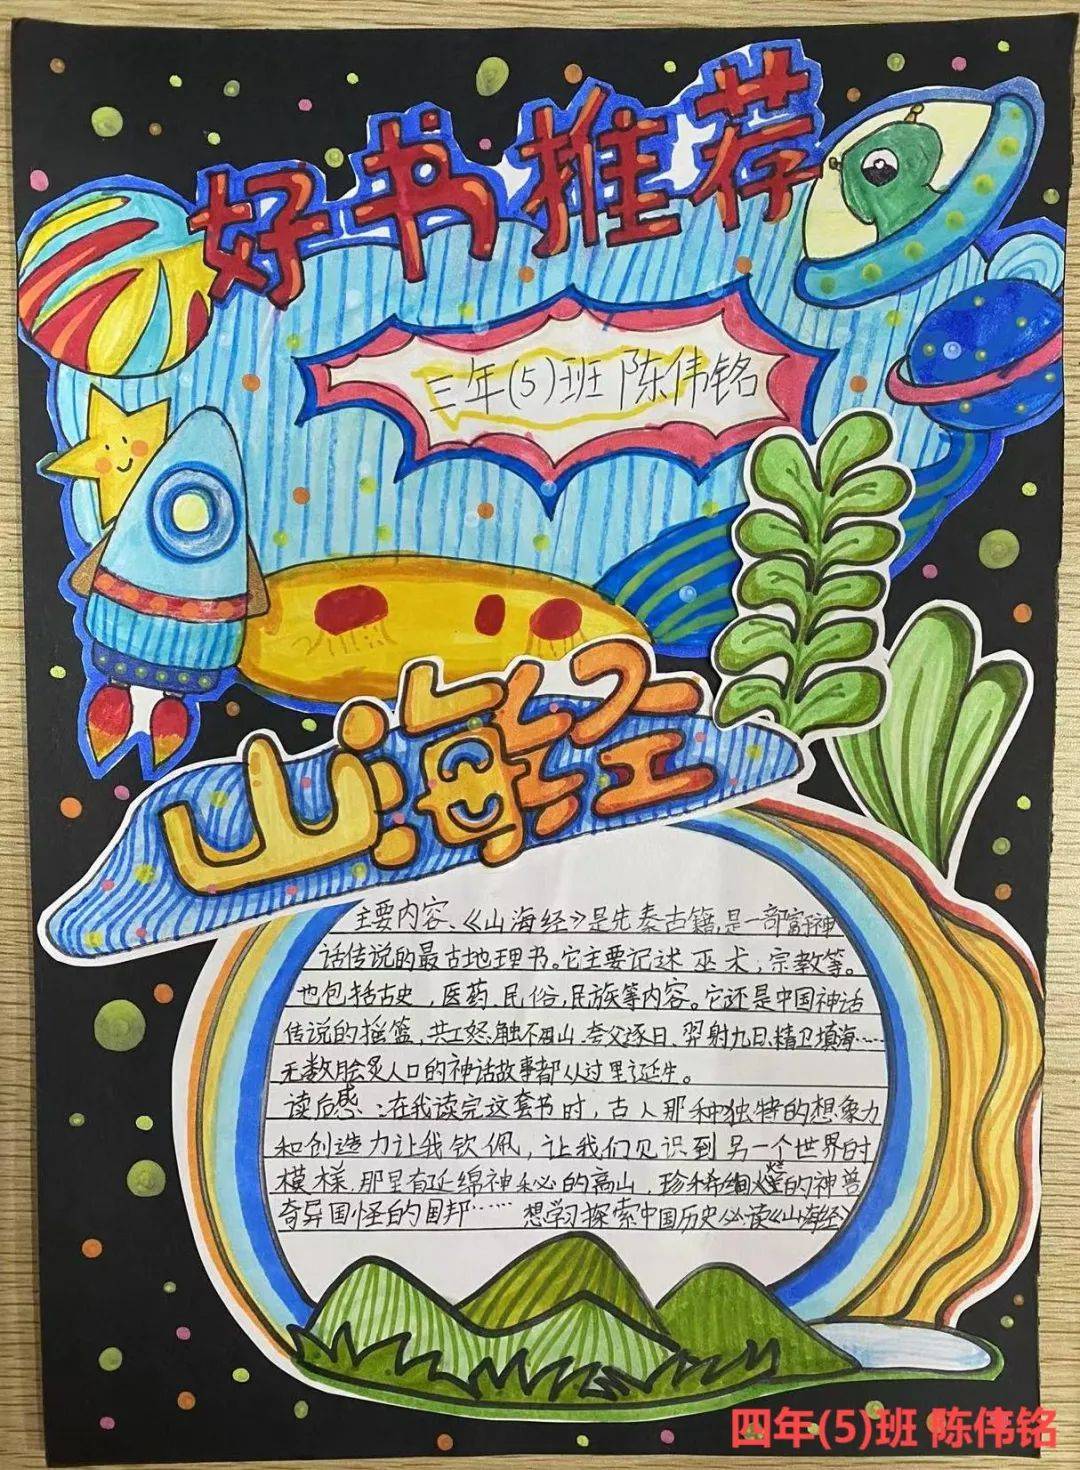 好书推荐
三年(5)班 陈伟铭
山海经
主要内容、《山海经》是先秦古籍,是一部富神
话传说的最古地理书。它主要记述 巫术,宗教等。
也包括古史,医药、民俗,民族等内容。它还是中国神话
传说的摇篮、共工怒触不周山、夸父逐日、羿射九日、精卫填海……
无数脍炙人口的神话故事都从过里延生。
读后感:在我读完这套书时,古人那种独特的想象力
和创造力让我钦佩,让我们见识到另一个世界的
模样,那里有延绵神秘的高山,珍稀 的神兽
奇异国怪的国邦……想学习探索中国历史必读《山海经》
四年(5)班 陈伟铭